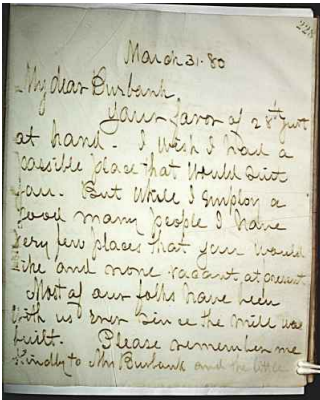 228
March 31 - 80
My dear Burbank
Your favor of 28th just
at hand - I wish I had a
possible place that would suit
you. But while I employ a
good many people I have
very few places that you would
like and none vacant at present.
Most of our folks have been
with us ever since the mill was
built. Please remember me
kindly to Mrs Burbank and the little